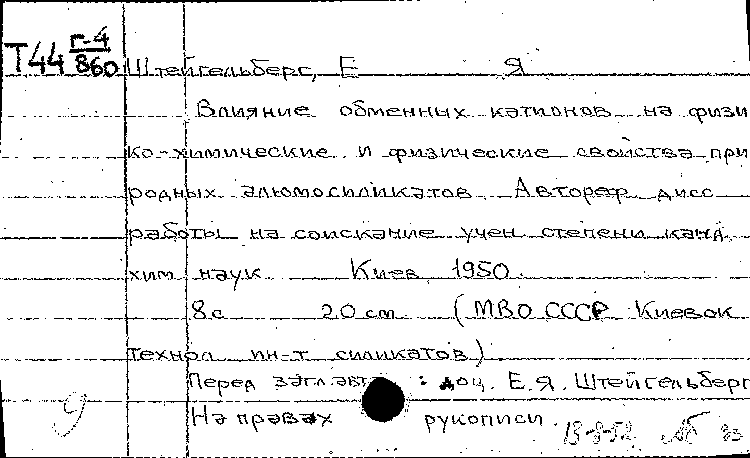 Т44 Г-4
860
Штейгельберг, Е Я
Влияние обменных катионов на физи
ко-химические и физические свойства при
родных алюмосиликатов Автореф дисс
работы на соискание учен степени канд.
хим наук Киев 1950.
8с 20 см (МВО СССР Киевск
технол ин-т силикатов)
Перед заглавт : доц. Е.Я. Штейгельберг
На правах рукописи.
9
13-8-52